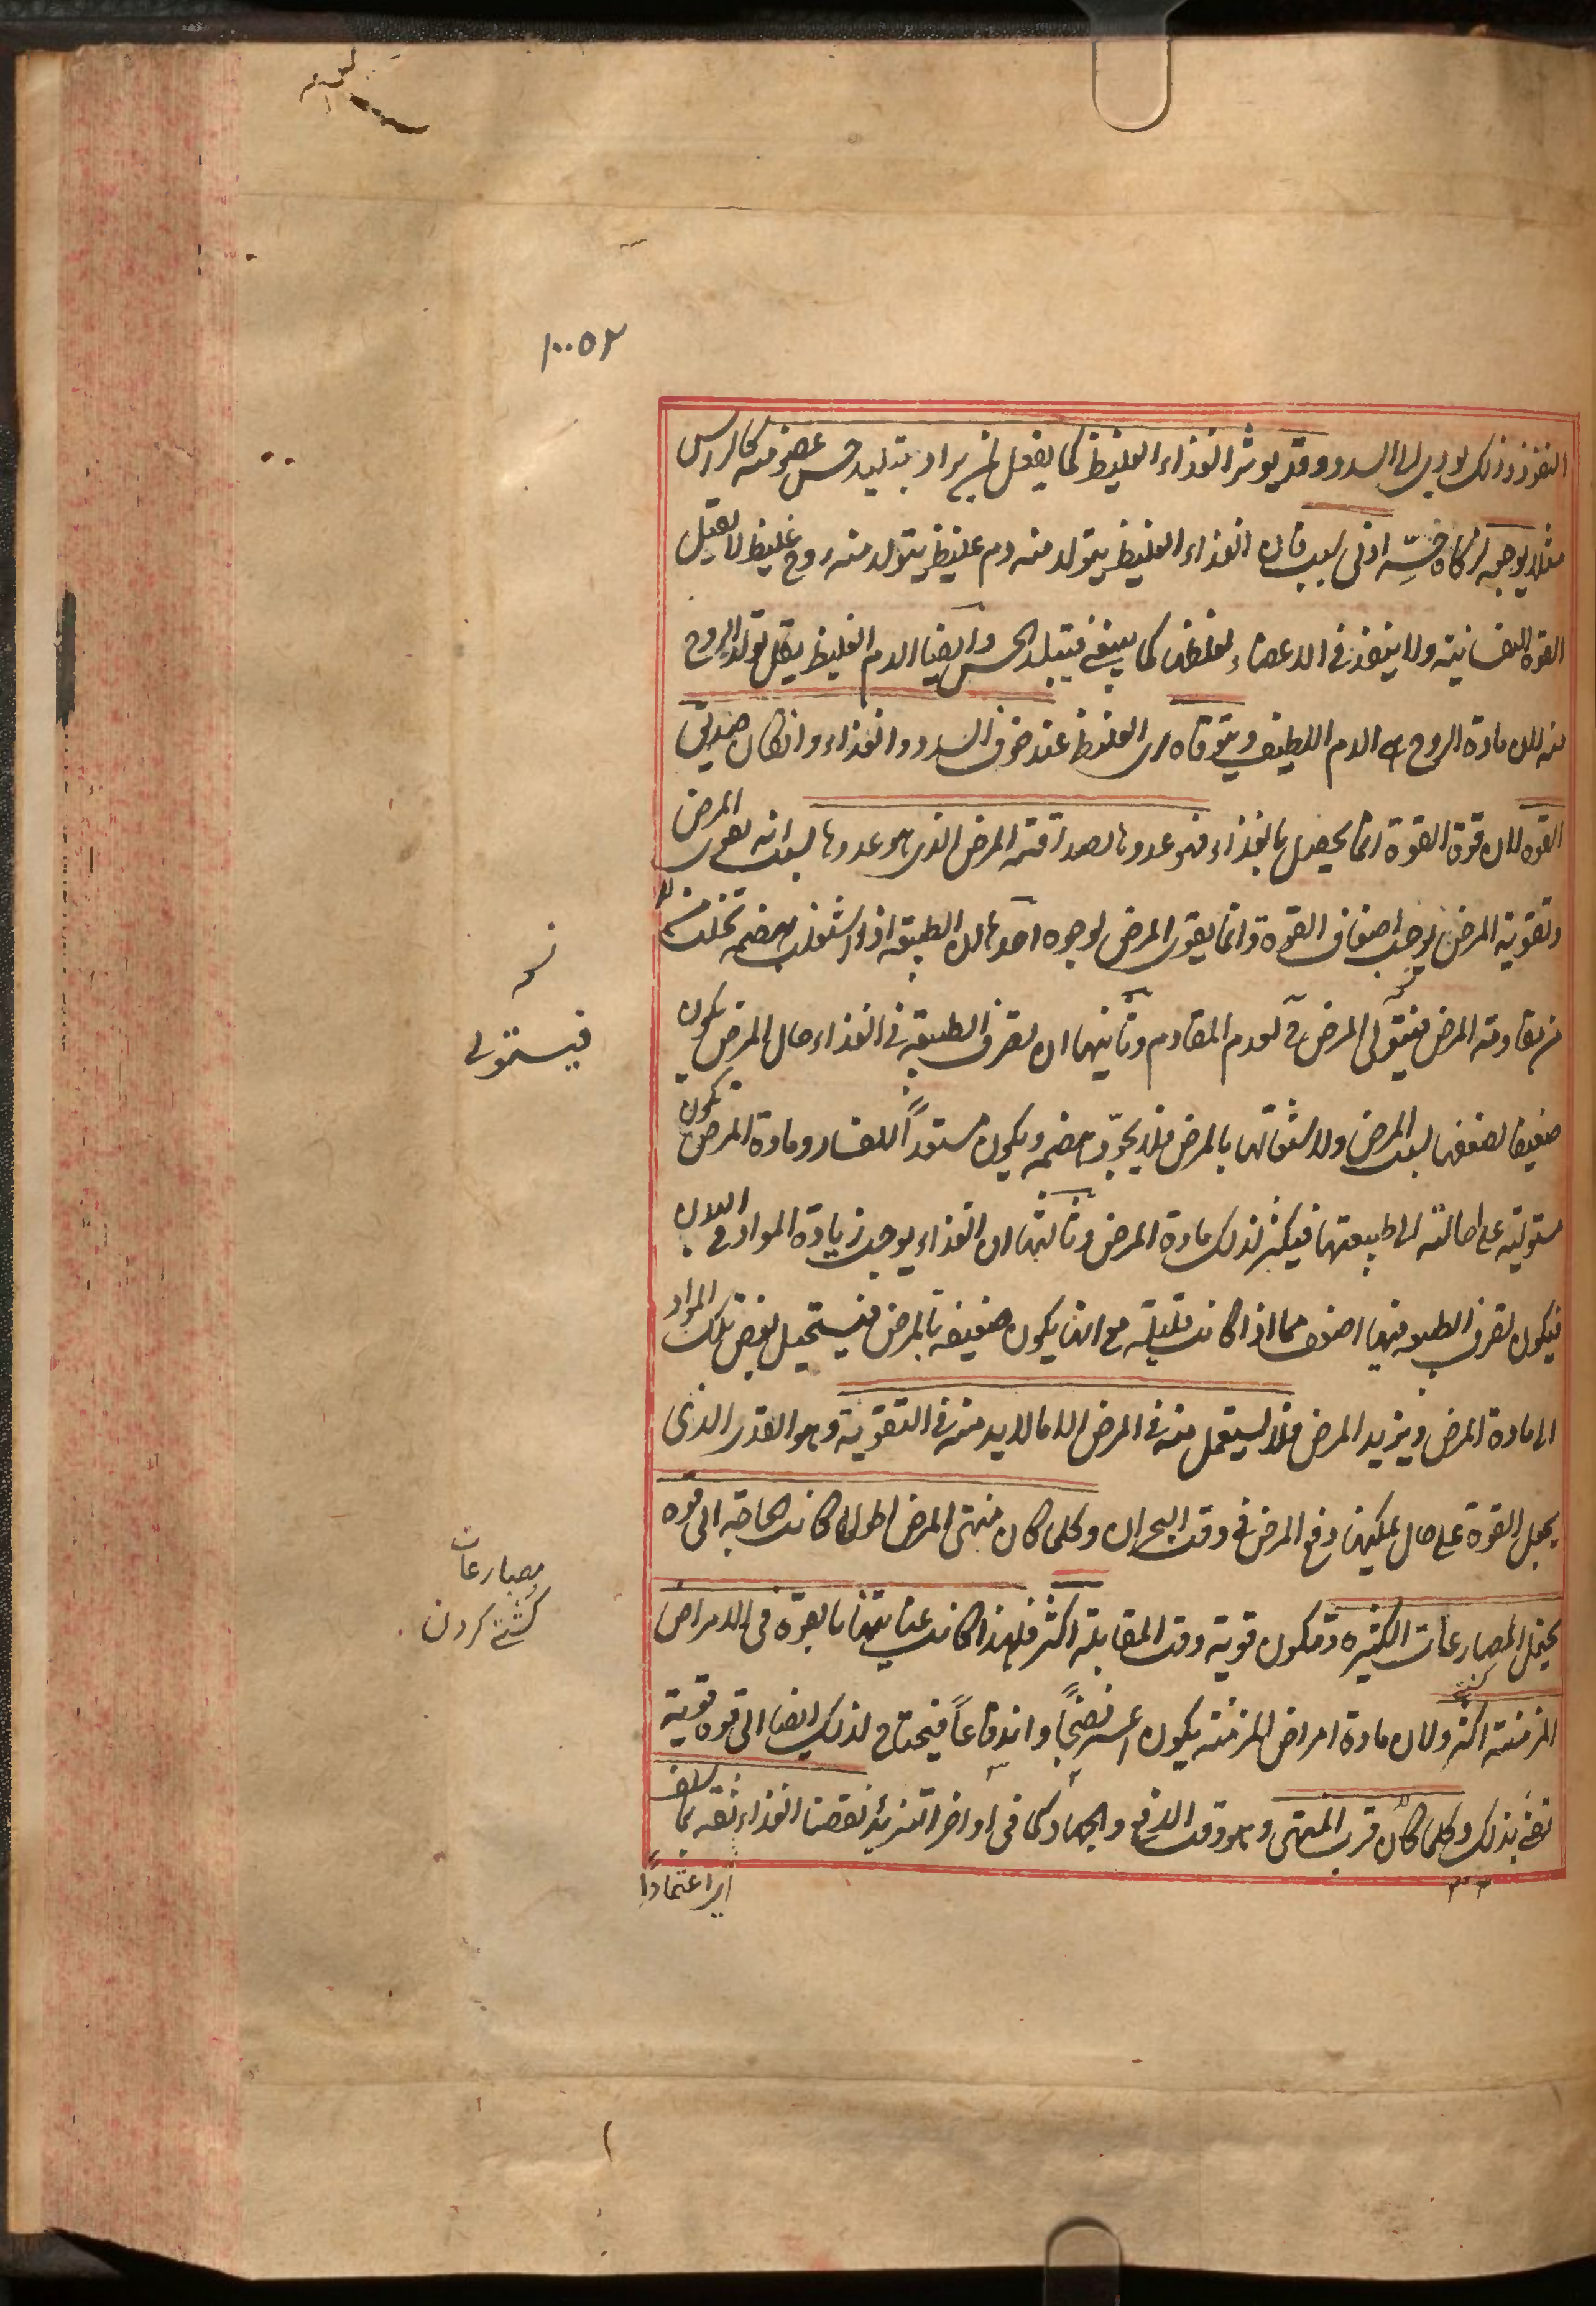 ١٠٠٥٢
النفوذ وذلك يودي الى السدد وقد يوثر الغذاء الغليظ كما يفعل لمن يراد تبليد حس عضو منه كالراس
مثلا يوجعه لذكاء حسه ادنى سبب فان الغذاء الغليظ يتولد منه دم غليظ يتولد منه روح غليظ لا يقبل
القوة النفسانية ولا ينفذ في الاعضاء لغلظها كما ينبغي فيتبلد الحس وايضا الدم الغليظ يقل تولد الروح
منه لان مادة الروح هي الدم اللطيف ويتوقاه اى الغليظ عند خوف السدد والغذاء وان كان صديق
القوة لان قوة القوة انما يحصل بالغذاء فهو عدو لها لصداقته المرض الذى هو عدوها بسبب انه يقوى المرض
وتقوية المرض يوجب اضعاف القوة وانما يقوى المرض لوجوه احدها ان الطبيعة اذا اشتغلت بهضمه تخلت
عن مقاومة المرض فيتولى المرض ح لعدم المقاوم وثانيها ان تصرف الطبيعة في الغذاء حال المرض يكون
ضعيفا لضعفها بسبب المرض ولاشتغالها بالمرض فلا يجود هضمه ويكون مستعدا للفساد ومادة المرض تكون
مستولية على احالته الى طبيعتها فيكثر لذلك مادة المرض وثالثها ان الغذاء يوجب زيادة المواد في البدن
فيكون تصرف الطبيعة فيها اضعف مما اذا كانت قليلة مع انها يكون ضعيفة بالمرض فيستحيل بعض تلك المواد
الى مادة المرض ويزيد المرض فلا يستعمل منه في المرض الا ما لا بد منه في التقوية وهو القدر الذى
يجعل القوة على حال يمكنها دفع المرض في وقت البحران وكلما كان منتهى المرض اطول كانت الحاجة الى قوة
يحتمل المصارعات الكثيرة وتكون قوية وقت المقابلة اكثر فلهذا كانت عنايتنا بالقوة في الامراض
المزمنة اكثر ولان مادة امراض المزمنة يكون اعسر نضجا واندفاعا فيحتاج لذلك ايضا الى قوة قوية
تفي بذلك وكلما كان قرب المنتهى وهو وقت الدفع والجهاد كما في اواخر التزيد نقصنا الغذاء ثقة بما سلف
اى اعتمادا
فيستولى
مصارعات
كشتى كردن